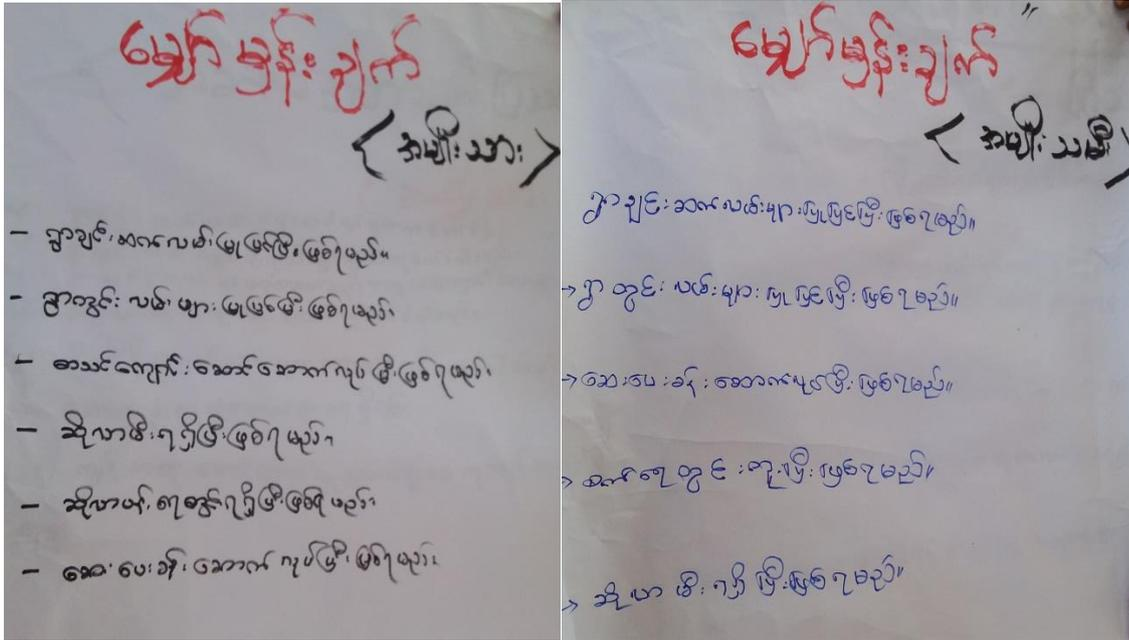 မျှော်မှန်းချက်
<အမျိုးသား>
- ရွာချင်းဆက်လမ်းပြုပြင်ပြီးဖြစ်ရမည်။
- ရွာတွင်းလမ်းများပြုပြင်ပြီးဖြစ်ရမည်။
- စာသင်ကျောင်းဆောင်ဆောက်လုပ်ပြီးဖြစ်ရမည်။
- ဆိုလာမီးရရှိပြီးဖြစ်ရမည်။
- ဆိုလာ ရေတွင်းရရှိပြီးဖြစ်ရမည်။
- ဆေးပေးခန်းဆောက်လုပ်ပြီးဖြစ်ရမည်။
မျှော်မှန်းချက်
<အမျိုးသမီး>
ရွာချင်းဆက်လမ်းများပြုပြင်ပြီးဖြစ်ရမည်။
→ ရွာတွင်းလမ်းများပြုပြင်ပြီးဖြစ်ရမည်။
→ ဆေးပေးခန်းဆောက်လုပ်ပြီးဖြစ်ရမည်။
→ စက်ရေတွင်းတူးပြီးဖြစ်ရမည်။
→ ဆိုလာမီးရရှိပြီးဖြစ်ရမည်။